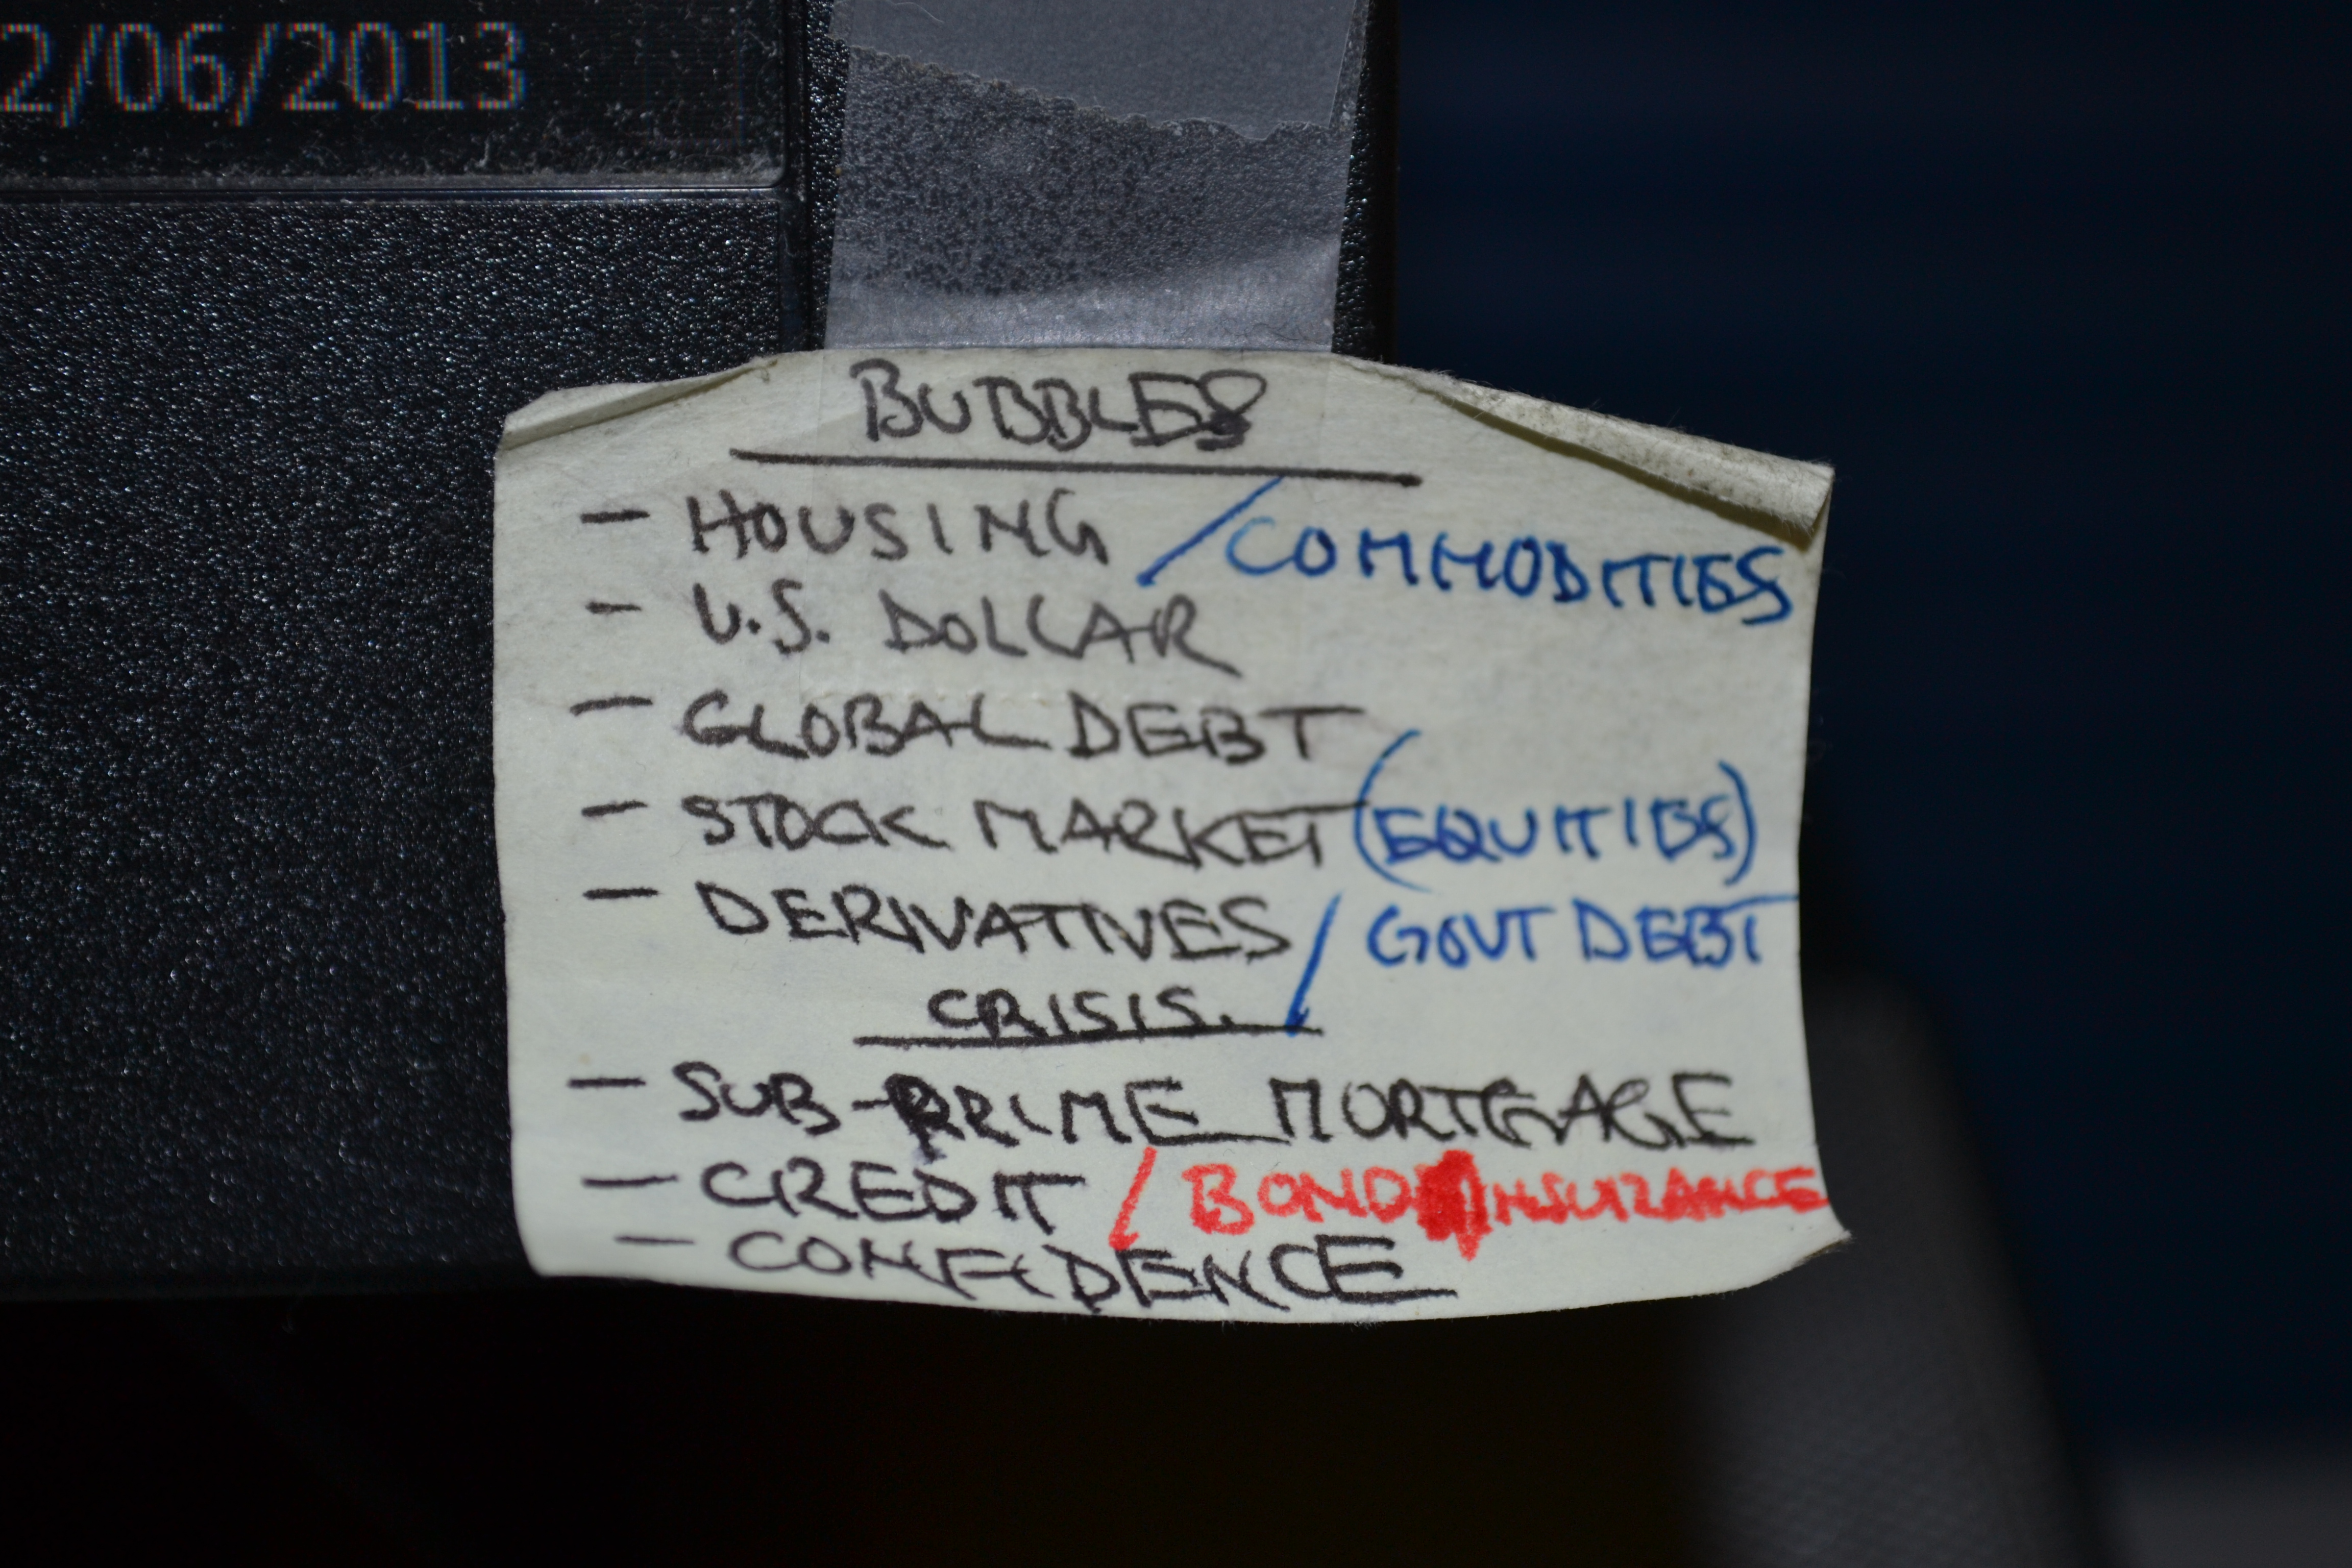 2/06/2013
BUBBLES
- HOUSING / COMMODITIES
- U.S. DOLLAR
- GLOBAL DEBT
- STOCK MARKET (EQUITIES)
- DERIVATIVES / GOVT DEBT
CRISIS.
- SUB-PRIME MORTGAGE
- CREDIT / BOND INSURANCE
- CONFIDENCE